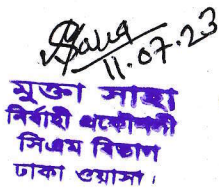 11.07.23
মুক্তা সাহা
নির্বাহী প্রকৌশলী
সিএম বিভাগ
ঢাকা ওয়াসা।